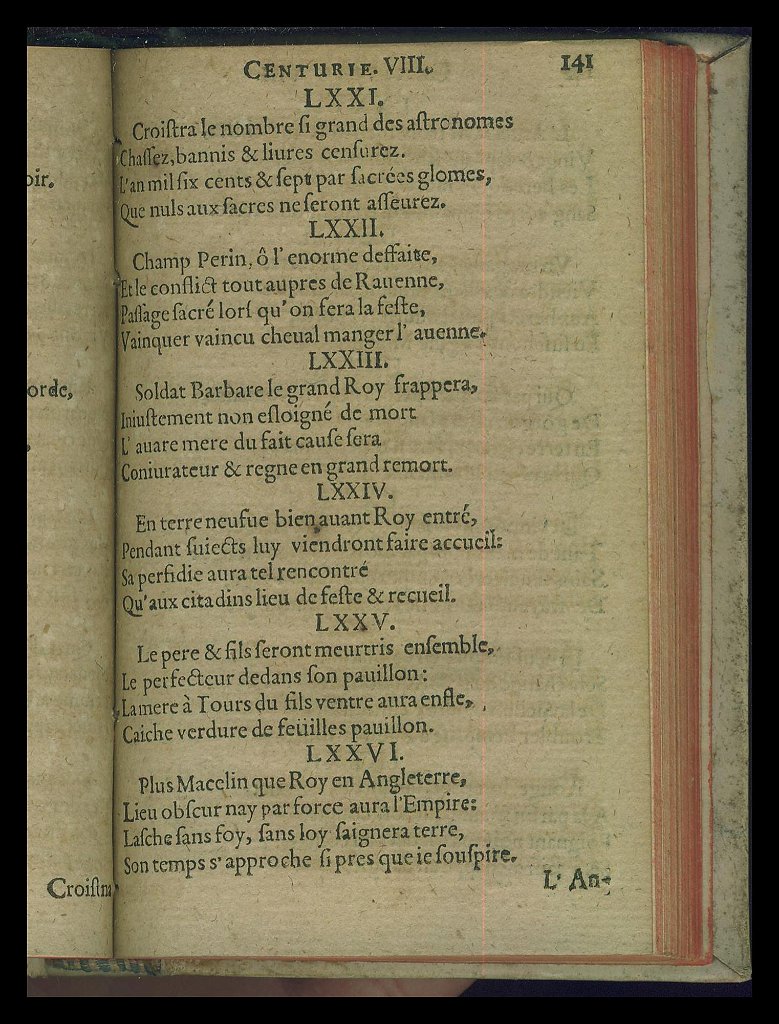 oir.
orde,
Croistra
CENTURIE. VIII.
141
LXXI.
Croiſtra le nombre ſi grand des aſtronomes
Chaſſez, bannis & liures cenſurez.
L'an mil ſix cents & ſept par ſacrées glomes,
Que nuls aux ſacres ne ſeront aſſeurez.
LXXII.
Champ Perin, ô l' enorme deffaite,
Et le conflict tout aupres de Rauenne,
Paſſage ſacré lorſ qu'on fera la feſte,
Vainquer vaincu cheual manger l' auenne.
LXXIII.
Soldat Barbare le grand Roy frappera,
Iniuſtement non eſloigné de mort
L' auare mere du fait cauſe ſera
Coniurateur & regne en grand remort.
LXXIV.
En terre neufue bien auant Roy entré,
Pendant ſuiects luy viendront faire accueil:
Sa perfidie aura tel rencontré
Qu'aux citadins lieu de feſte & recueil.
LXXV.
Le pere & fils ſeront meurtris enſemble,
Le perfecteur dedans ſon pauillon:
La mere à Tours du fils ventre aura enfle,
Caiche verdure de feüilles pauillon.
LXXVI.
Plus Macelin que Roy en Angleterre,
Lieu obſcur nay par force aura l'Empire:
Laſche ſans foy, ſans loy ſaignera terre,
Son temps s'approche ſi pres que ie ſouſpire.
L' An-